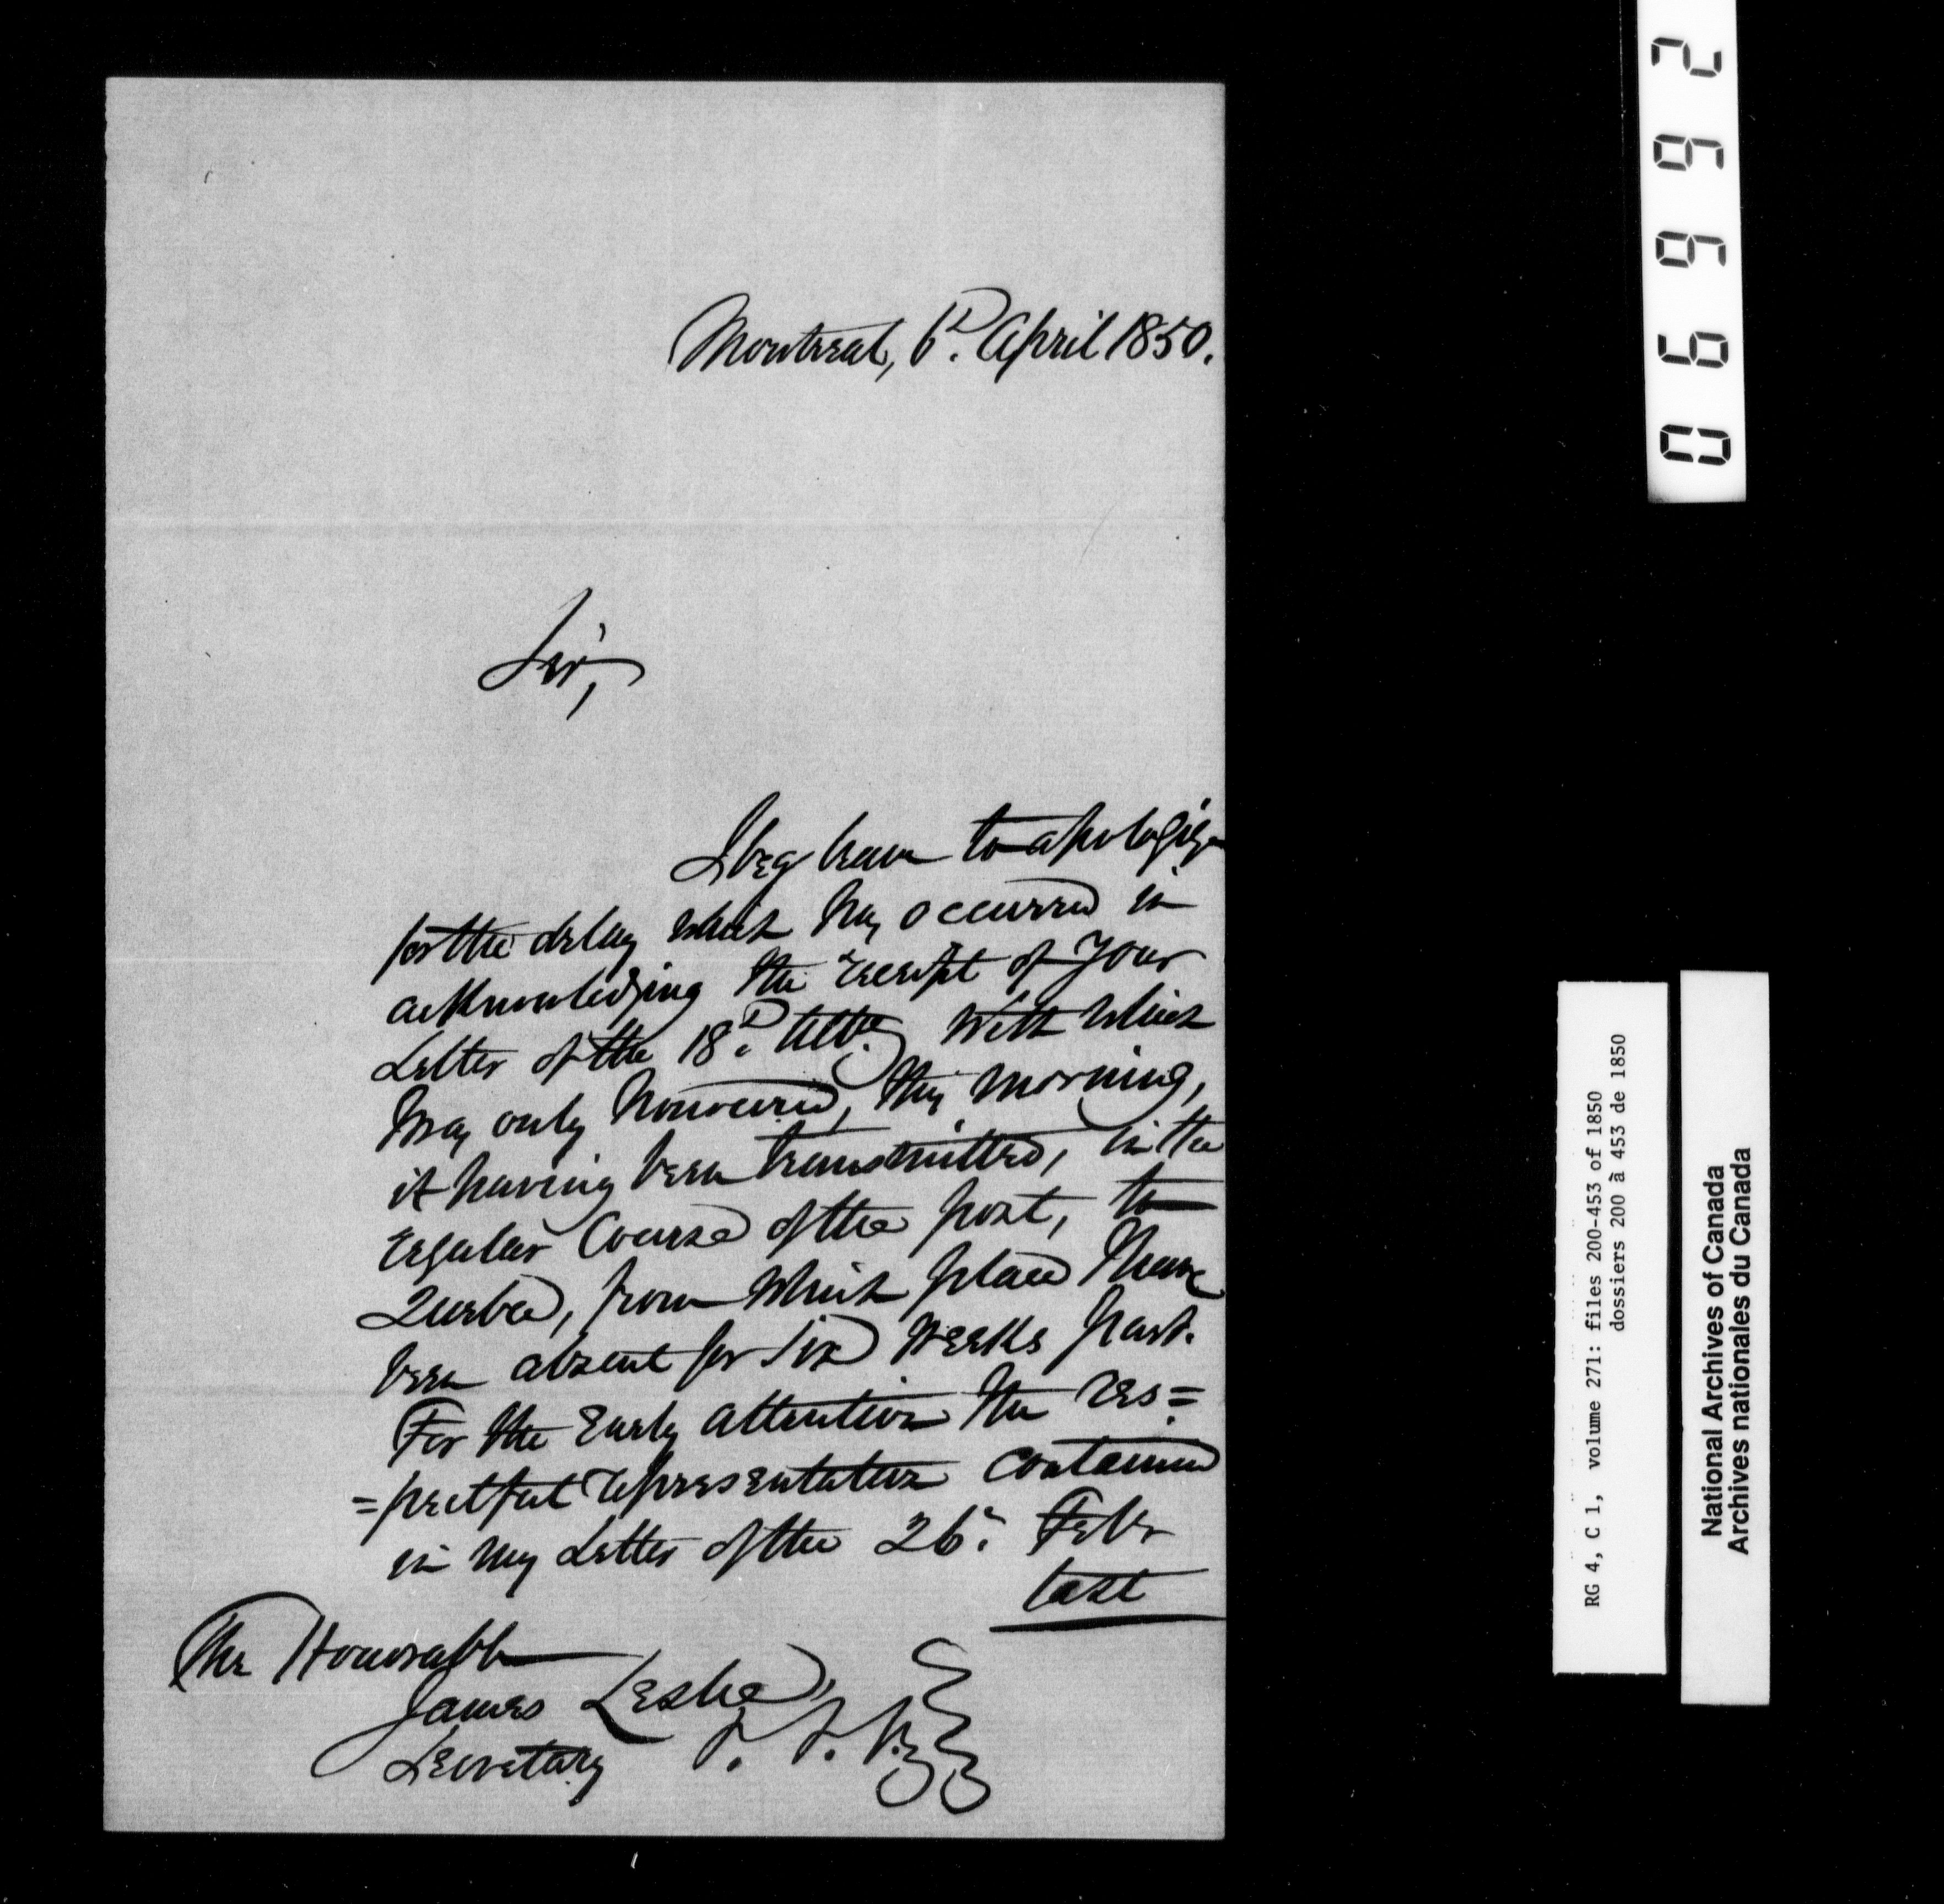 Montreal, 6th. April 1850.
Sir,
I beg leave to apologize
for the delay which has occurred in
acknowledging the receipt of Your
Letter of the 18th. Ulto. With Which
I was only honoured, this morning,
it having been transmitted, in the
regular Course of the post, to
Quebec, from Which place I have
been absent for Six Weeks past.
For the Early attention the res=
=pectful representation contained
in my Letter of the 26. Feby
last
The Honorable
James Leslie,
Secretary
06992
RG 4, C 1, volume 271: files 200-453 of 1850
dossiers 200 à 453 de 1850
National Archives of Canada
Archives nationales du Canada